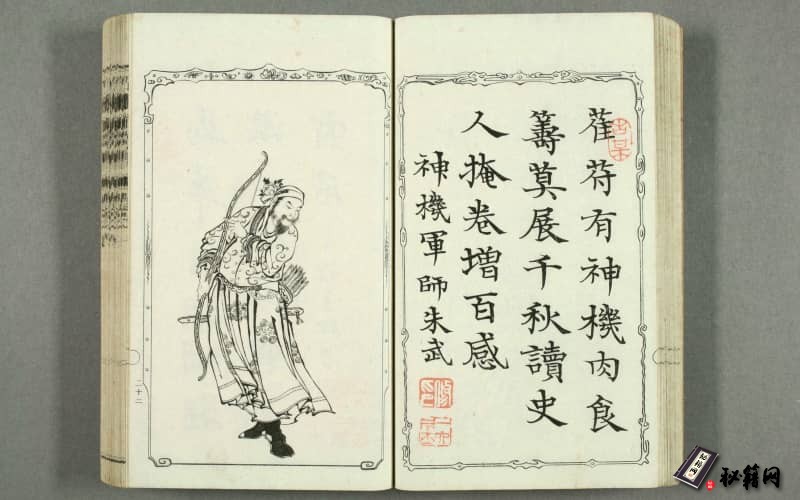 萑苻有神機肉食
籌莫展千秋讀史
人掩卷增百感
神機軍師朱武
二十二
秘籍网